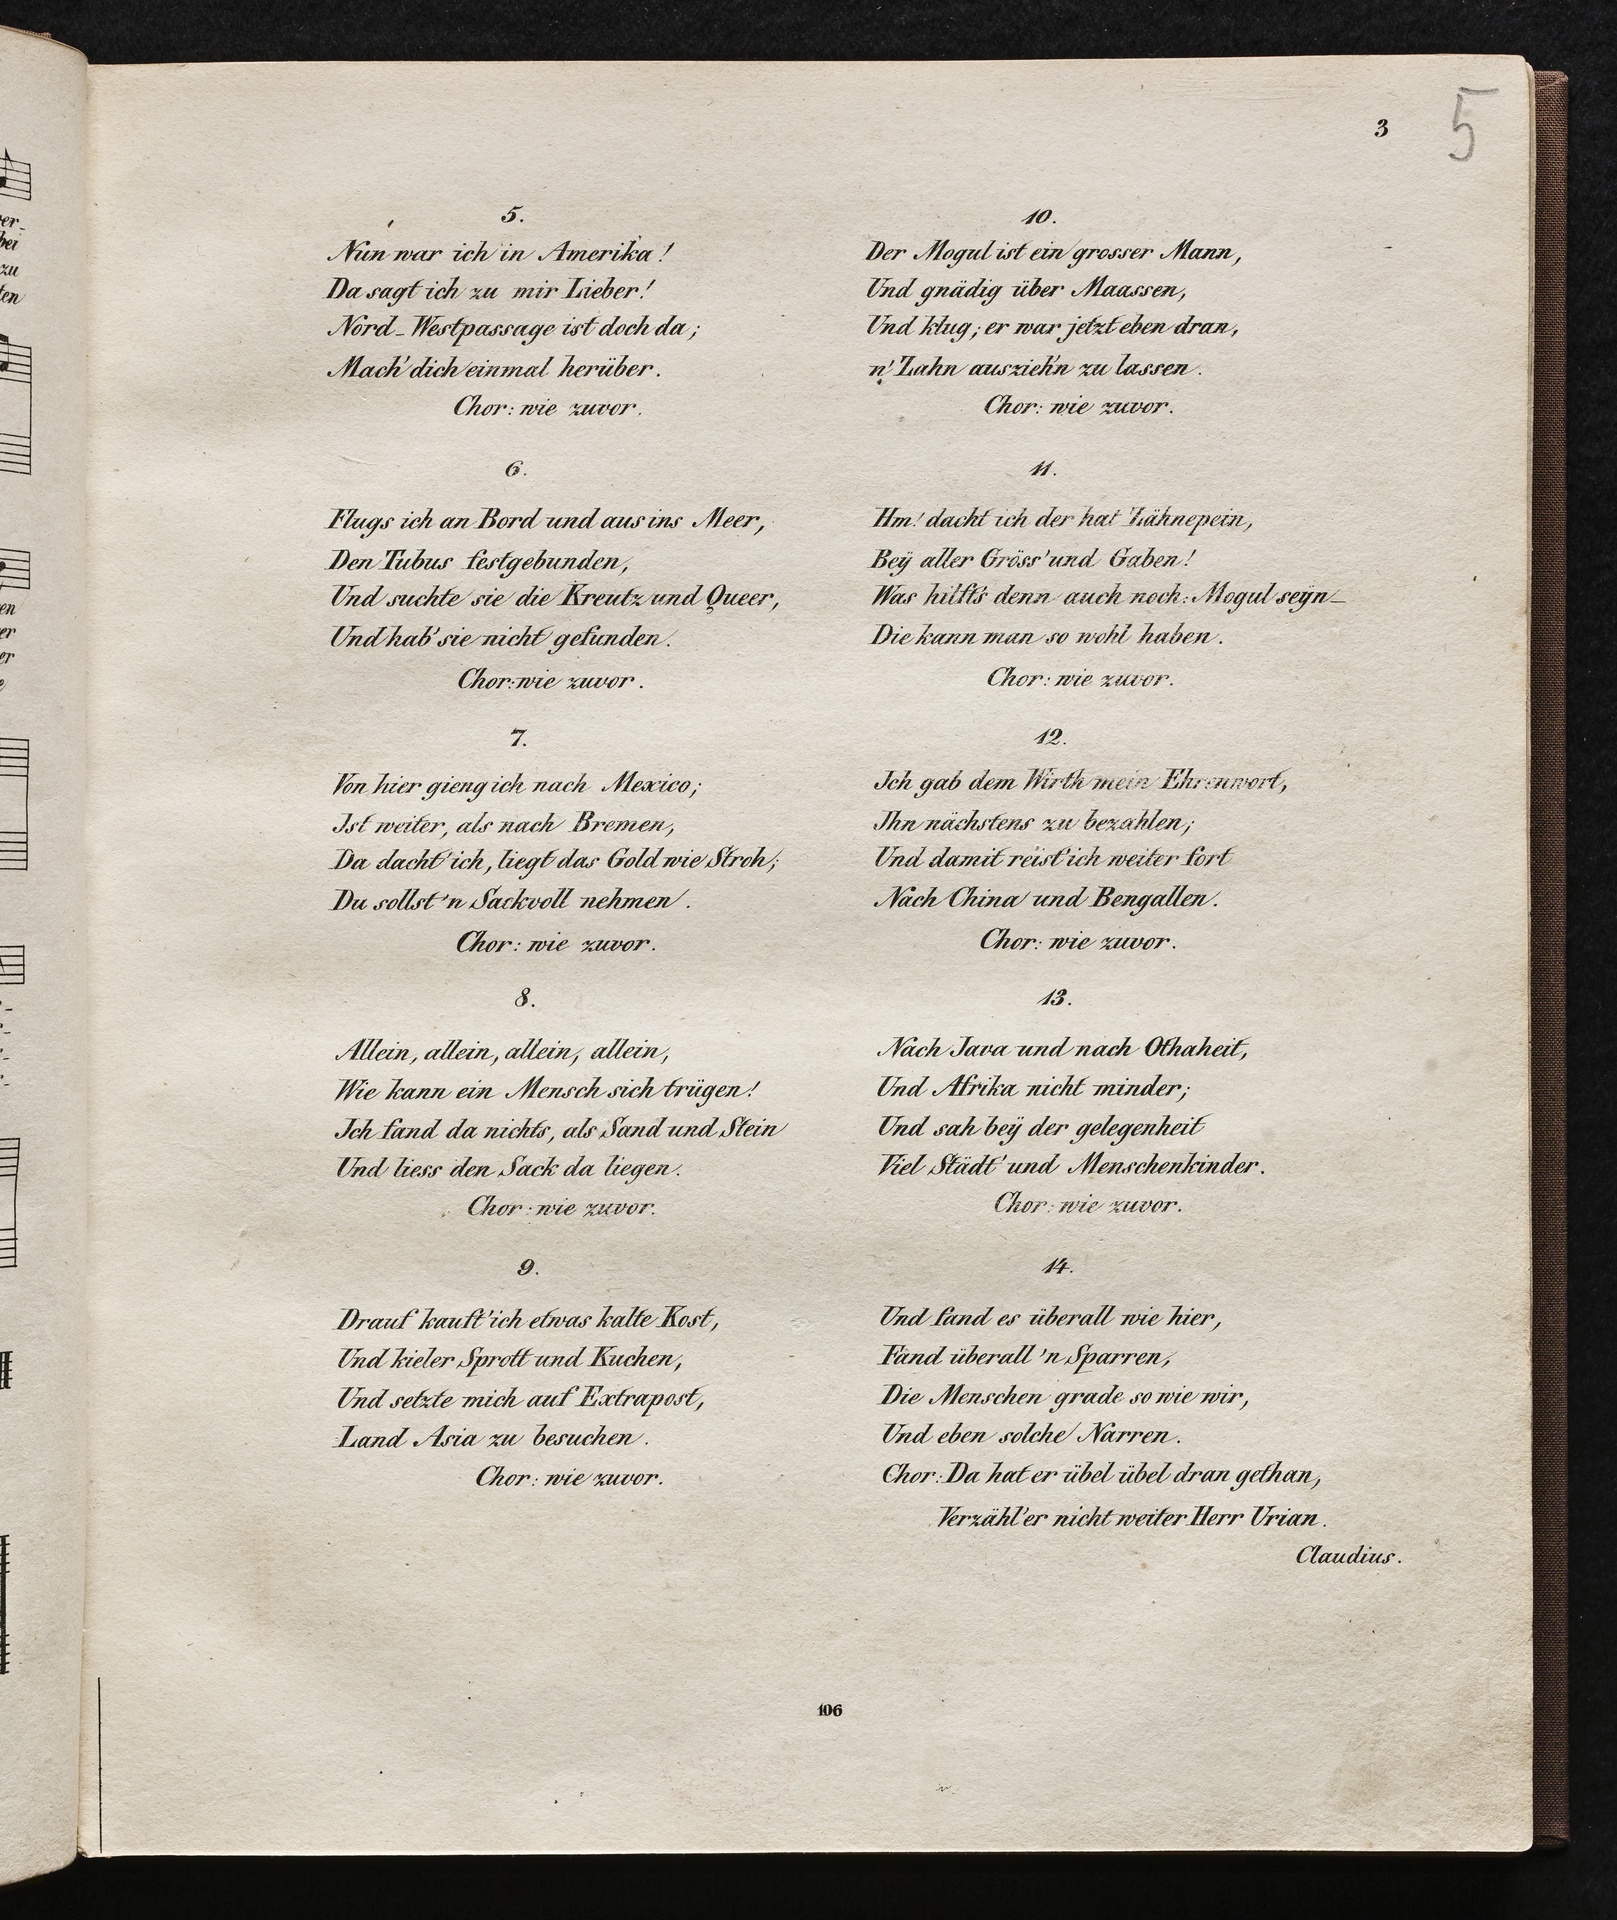 3
5
5.
Nun war ich in Amerika!
Da sagt ich zu mir Lieber!
Nord-Westpassage ist doch da;
Mach' dich einmal herüber.
Chor: wie zuvor.
6.
Flugs ich an Bord und aus ins Meer,
Den Tubus festgebunden,
Und suchte sie die Kreutz und Queer,
Und hab' sie nicht gefunden.
Chor: wie zuvor.
7.
Von hier gieng ich nach Mexico;
Ist weiter, als nach Bremen,
Da dacht' ich, liegt das Gold wie Stroh;
Du sollst 'n Sackvoll nehmen.
Chor: wie zuvor.
8.
Allein, allein, allein, allein,
Wie kann ein Mensch sich trügen!
Ich fand da nichts, als Sand und Stein
Und liess den Sack da liegen.
Chor: wie zuvor.
9.
Drauf kauft' ich etwas kalte Kost,
Und kieler Sprott und Kuchen,
Und setzte mich auf Extrapost,
Land Asia zu besuchen.
Chor: wie zuvor.
10.
Der Mogul ist ein grosser Mann,
Und gnädig über Maassen,
Und klug; er war jetzt eben dran,
n' Zahn auszieh'n zu lassen.
Chor: wie zuvor.
11.
Hm! dacht ich der hat Zähnepein,
Beÿ aller Gröss' und Gaben!
Was hilft's denn auch noch: Mogul seÿn_
Die kann man so wohl haben.
Chor: wie zuvor.
12.
Ich gab dem Wirth mein Ehrenwort,
Ihn nächstens zu bezahlen;
Und damit reist' ich weiter fort
Nach China und Bengallen.
Chor: wie zuvor.
13.
Nach Java und nach Othaheit,
Und Afrika nicht minder;
Und sah beÿ der gelegenheit
Viel Städt' und Menschenkinder.
Chor: wie zuvor.
14.
Und fand es überall wie hier,
Fand überall 'n Sparren,
Die Menschen grade so wie wir,
Und eben solche Narren.
Chor: Da hat er übel übel dran gethan,
Verzähl' er nicht weiter Herr Urian.
Claudius.
106